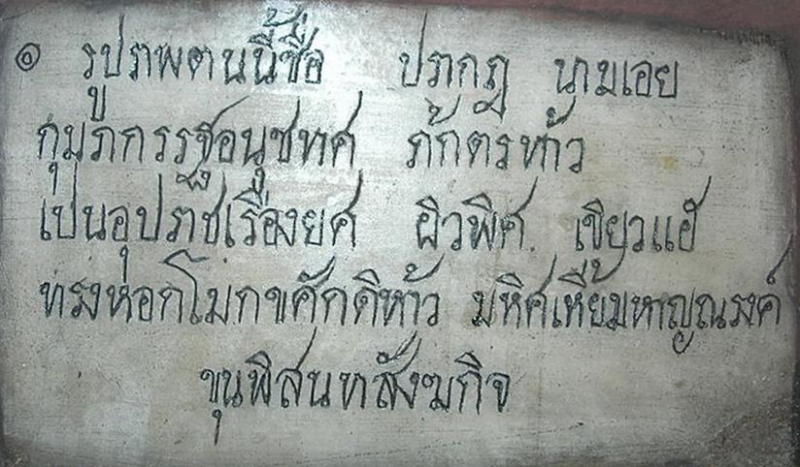 ๏ รูปภพตนนี้ชื่อ ปรากฎ นามเอย
กุมภกรรฐอนุชทศ ภักตร์ห้าว
เปนอุปราชเรืองยศ ผิวพิศ เขียวแฮ
ทรงหอกโมกขศักดิห้าว มหิศเหี้ยมหาญณรงค์
ขุนพิสนทสังฆกิจ